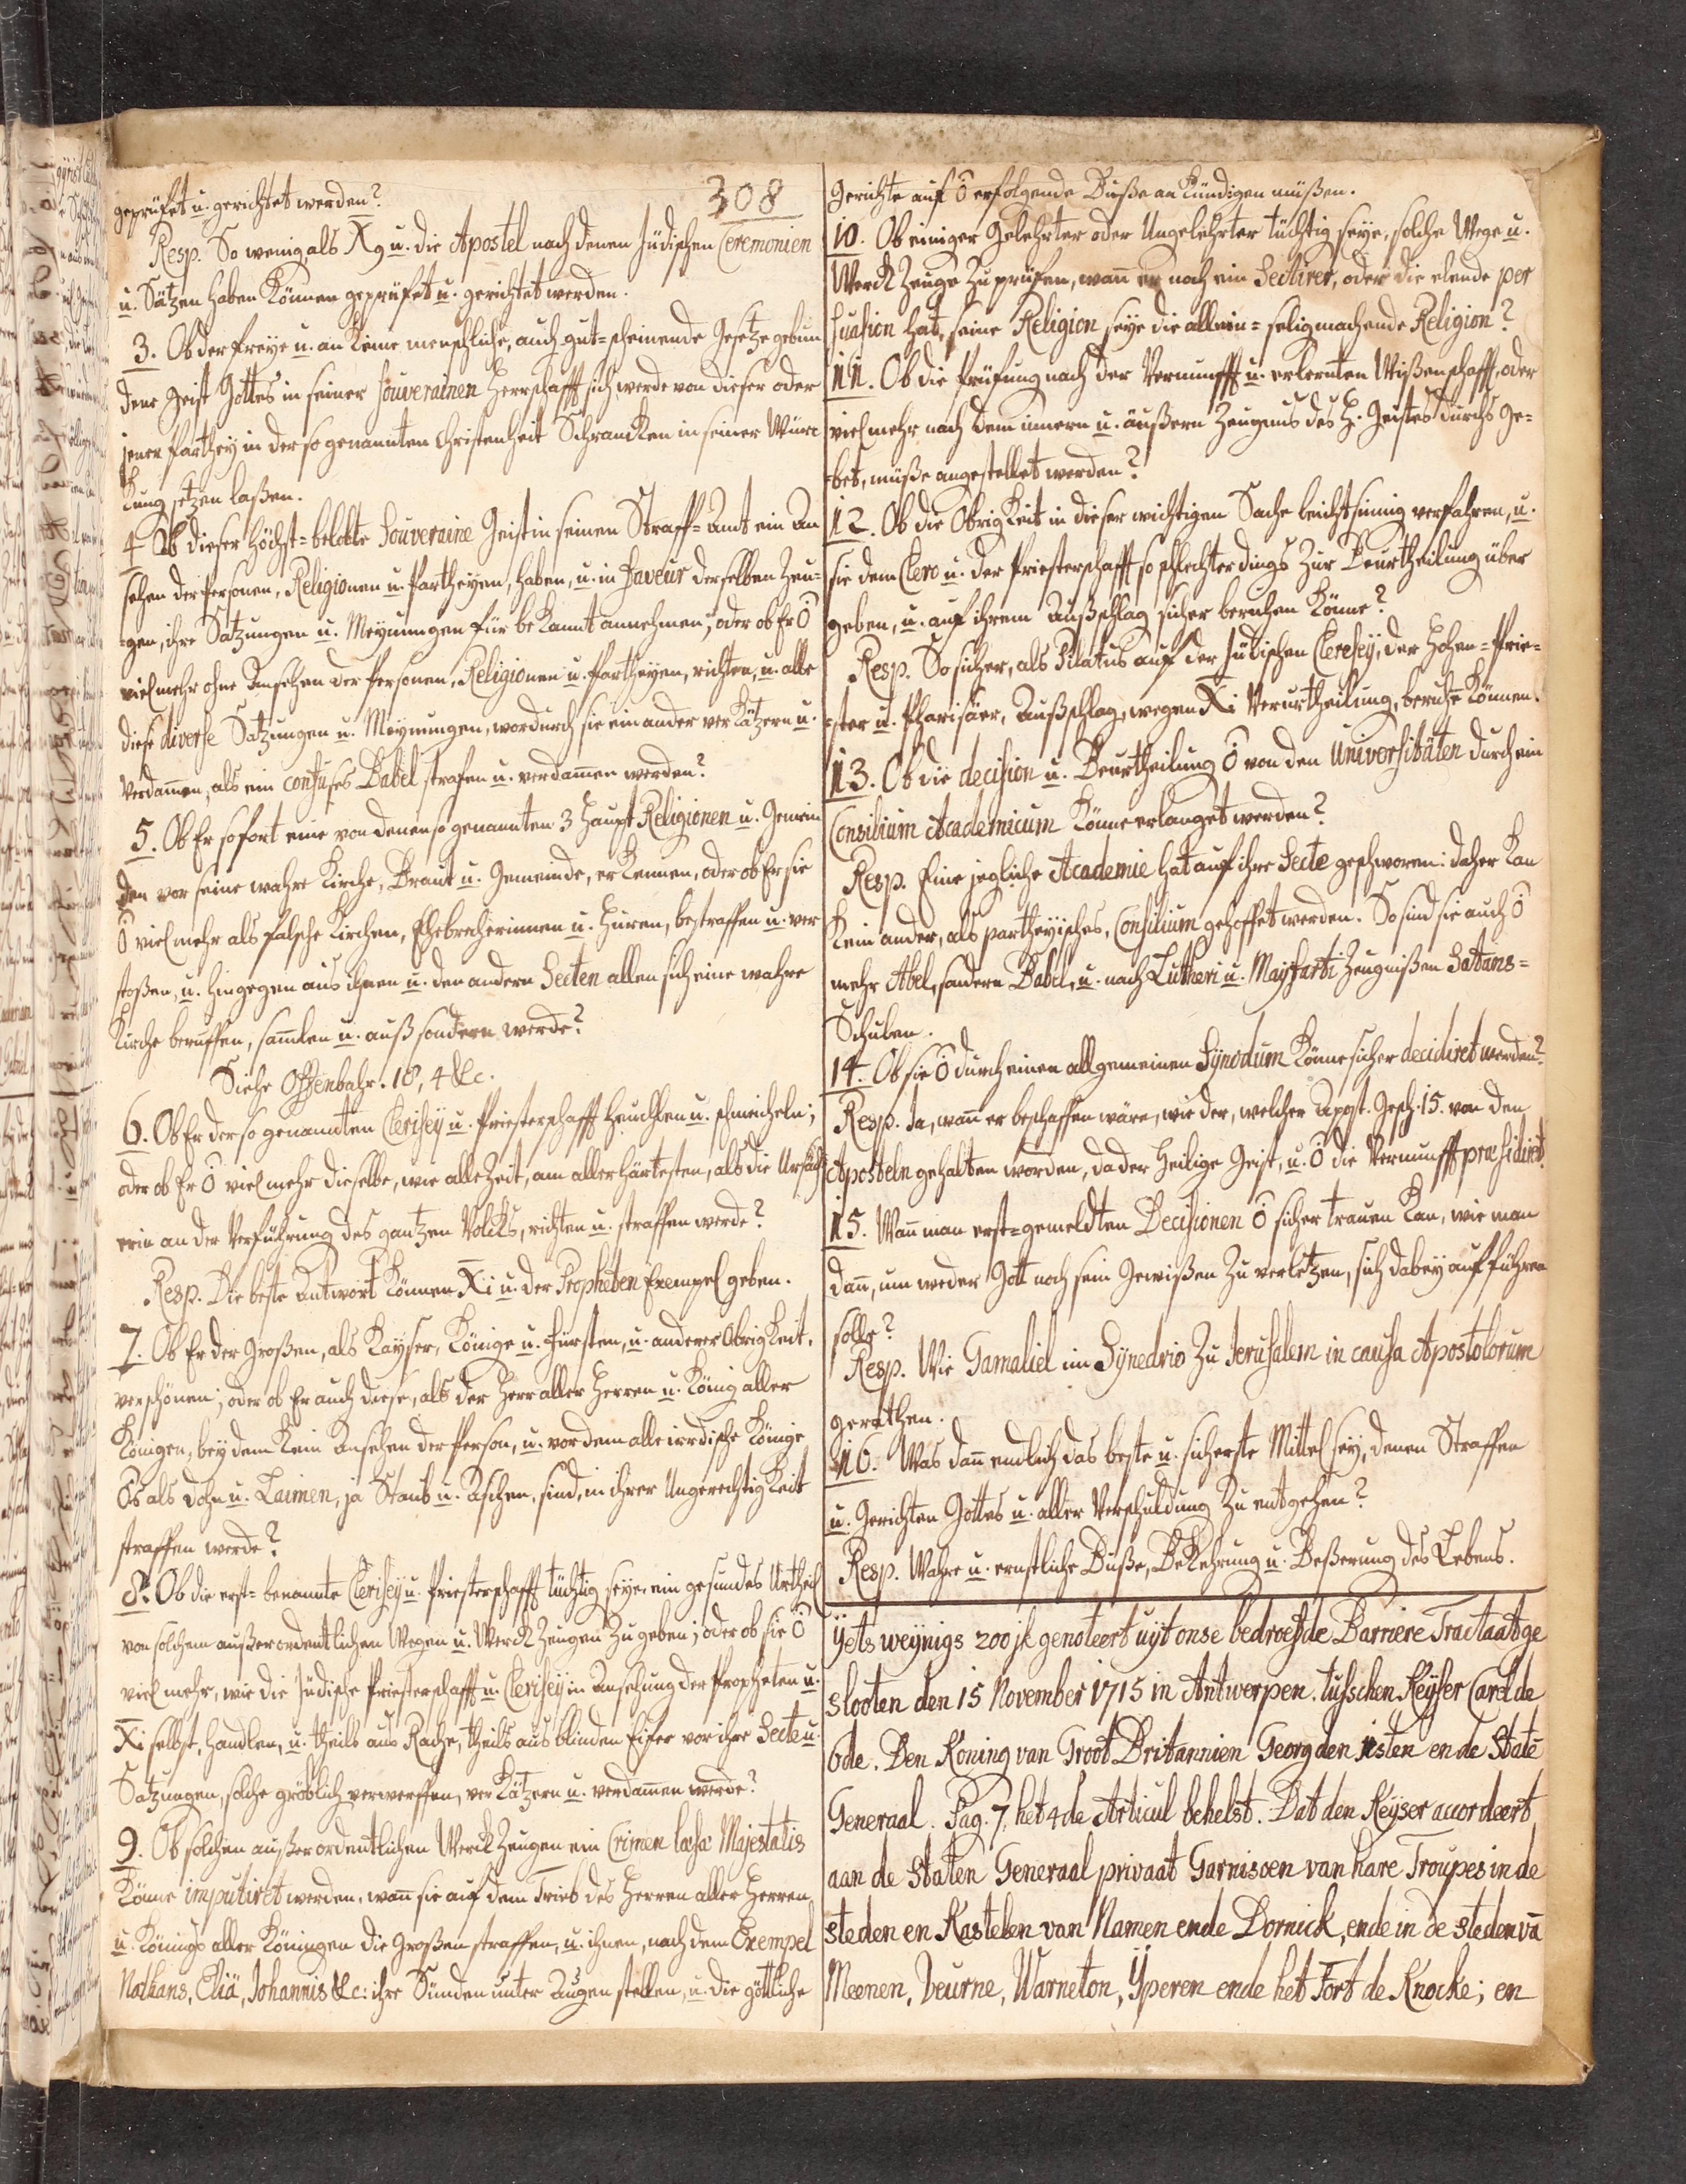 308
geprüfet u. gerichtet werden?
Resp. So wenig als X9 u. die Apostel nach denen Jüdischen Ceremonien
u. Sätzen haben können geprüfet u. gerichtet werden.
3. Ob der freye u. an keine menschliche, auch gut=scheinende Gesetze gebun
dene Geist Gottes in seiner Souverainen Herrschafft sich werde von dieser oder
jener Parthey in der so genannten Christenheit Schrancken in seiner Würc
kung setzen laßen.
4 Ob dieser höchst=belobte Souveraine Geist in seinen Straff=Amt ein An
sehen der Personen, Religionen u. Partheyen, haben, u. in Faveur derselben Zeu=
=gen, ihre Satzungen u. Meynungen für bekannt annehmen; oder ob Er ō
viel mehr ohne Ansehen der Personen, Religionen u. Partheyen, richten, u. alle
diese diverse Satzungen u. Meynungen, wordurch sie einander verkätzern u.
verdam̄en, als ein confuses Babel strafen u. verdam̄en werde?
5. Ob Er sofort eine von denen so genannten 3 Haupt Religionen u. Gemein
den vor seine wahre Kirche, Braut u. Gemeinde, erkennen, oder ob Er sie
ō viel mehr als falsche Kirchen, Ehebrecherinnen u. Huren, bestraffen u. ver
stoßen, u. hingegen aus ihnen u. den andern Secten allen sich eine wahre
Kirche beruffen, sam̄len u. auß sondern werde?
Siehe Offenbahr. 18, 4 &c.
6. Ob Er der so genannten Clerisey u. Priesterschafft heuchlen u. schmeicheln;
oder ob Er ō viel mehr dieselbe, wie alle Zeit, am aller härtesten, als die Ursäch
erin an der Verführung des gantzen Volcks, richten u. straffen werde?
Resp. Die beste Antwort können Xi u. der Propheten Exempel geben.
7. Ob Er der Großen, als Kayser, Könige u. Fürsten, u. anderer Obrigkeit,
verschonen; oder ob Er auch diese, als der Herr aller Herren u. König aller
Königen, bey dem kein Ansehen der Person, u. vor dem alle irrdische Könige
als u. Laimen, ja Staub u. Aschen, sind, in ihrer Ungerechtigkeit
straffen werde?
8. Ob die erst=benannte Clerisey u. Priesterschafft tüchtig seye, ein gesundes Urtheil
von solchen außerordentlichen Wegen u. Werck Zeugen zu geben; oder ob sie ō
viel mehr, wie die Jüdische Priesterschafft u. Clerisey in Ansehung der Propheten u.
Xi selbst, handlen, u. theils aus Rache, theils aus blinden Eifer vor ihre Secte u.
Satzungen, solche gröblich verwerffen, verkätzern u. verdam̄en werde?
9. Ob solchen außerordentlichen Werck Zeugen ein Crimen læsæ Majestatis
könne imputiret werden, wan̄ sie auf dem Trieb des Herren aller Herren
u. Königs aller Königen die Großen straffen, u. ihnen, nach dem Exempel
Nathans, Eliä, Johannis &c: ihre Sünden unter Augen stellen, u. die göttliche
Gerichte auf ō erfolgende Buße an kündigen müßen.
10. Ob einiger Gelehrter oder Ungelehrter tüchtig seye, solche Wege u.
Werck Zeuge zu prüfen, wan̄ er noch ein Sectirer, oder die elende per
suasion hat, seine Religion seye die allein=seligmachende Religion?
11. Ob die Prüfung nach der Vernunfft u. erlernten Wißenschafft, oder
viel mehr nach dem innern u. äußern Zeugnus des H. Geistes durchs Ge=
=bet, müße angestellet werden?
12. Ob die Obrigkeit in dieser wichtigen Sache leichtsinnig verfahren, u.
sie dem Clero u. der Priesterschafft so schlechter dings zur Beurtheilung über
geben, u. auf ihrem Außschlag sicher beruhen könne?
Resp. So sicher, als Pilatus auf der Jüdischen Cleresey, der Hohen=Prie=
=ster u. Pharisäer, Außschlag, wegen Xi Verurtheilung, beruhē können.
13. Ob die decision u. Beurtheilung ō von den Universitäten durch ein
Consilium Academicum könne erlanget werden?
Resp. Eine jegliche Academie hat auf ihre Secte geschworen: daher kan
kein ander, als partheyisches, Consilium gehoffet werden. So sind sie auch ō
mehr Abel, sondern Babel, u. nach Lutheri u. Mayfarti Zeugnißen Satans=
Schulen.
14. Ob sie ō durch einen allgemeinen Synodum könne sicher decidiret werden?
Resp. Ja, wan̄ er beschaffen wäre, wie der, welcher Apost. Gesch. 15. von den
Aposteln gehalten worden, da der Heilige Geist, u. ō die Vernunfft præsidirt.
15. Wan̄ man erst=gemeldten Decisionen ō sicher trauen kan, wie man
dan̄, um weder Gott noch sein Gewißen zu verletzen, sich dabey aufführen
solle?
Resp. Wie Gamaliel im Synedrio zu Jerusalem in causa Apostolorum
gerathen.
16. Was dan̄ endlich das beste u. sicherste Mittel sey, denen Straffen
u. Gerichten Gottes u. aller Verschuldung zu entgehen?
Resp. Wahre u. ernstliche Buße, Bekehrung u. Beßerung des Lebens.
Yets weynigs zoo jk genoteert uyt onse bedroefde Barriere Tractaat ge
slooten den 15 November 1715 in Antwerpen. tusschen Keyser Carel de
6de. Den Koning van Groot Britannien Georg den 1sten en de Statē
Generaal. Pag. 7. het 4de Articul behelst. Dat den Keyser accordeert
aan de Staten Generaal privaat Garnisoen van hare Troupes in de
steden en Kastelen van Namen ende Dornick, ende in de steden vā
Meenen, Veurne, Warneton, Yperen ende het Fort de Knocke; en